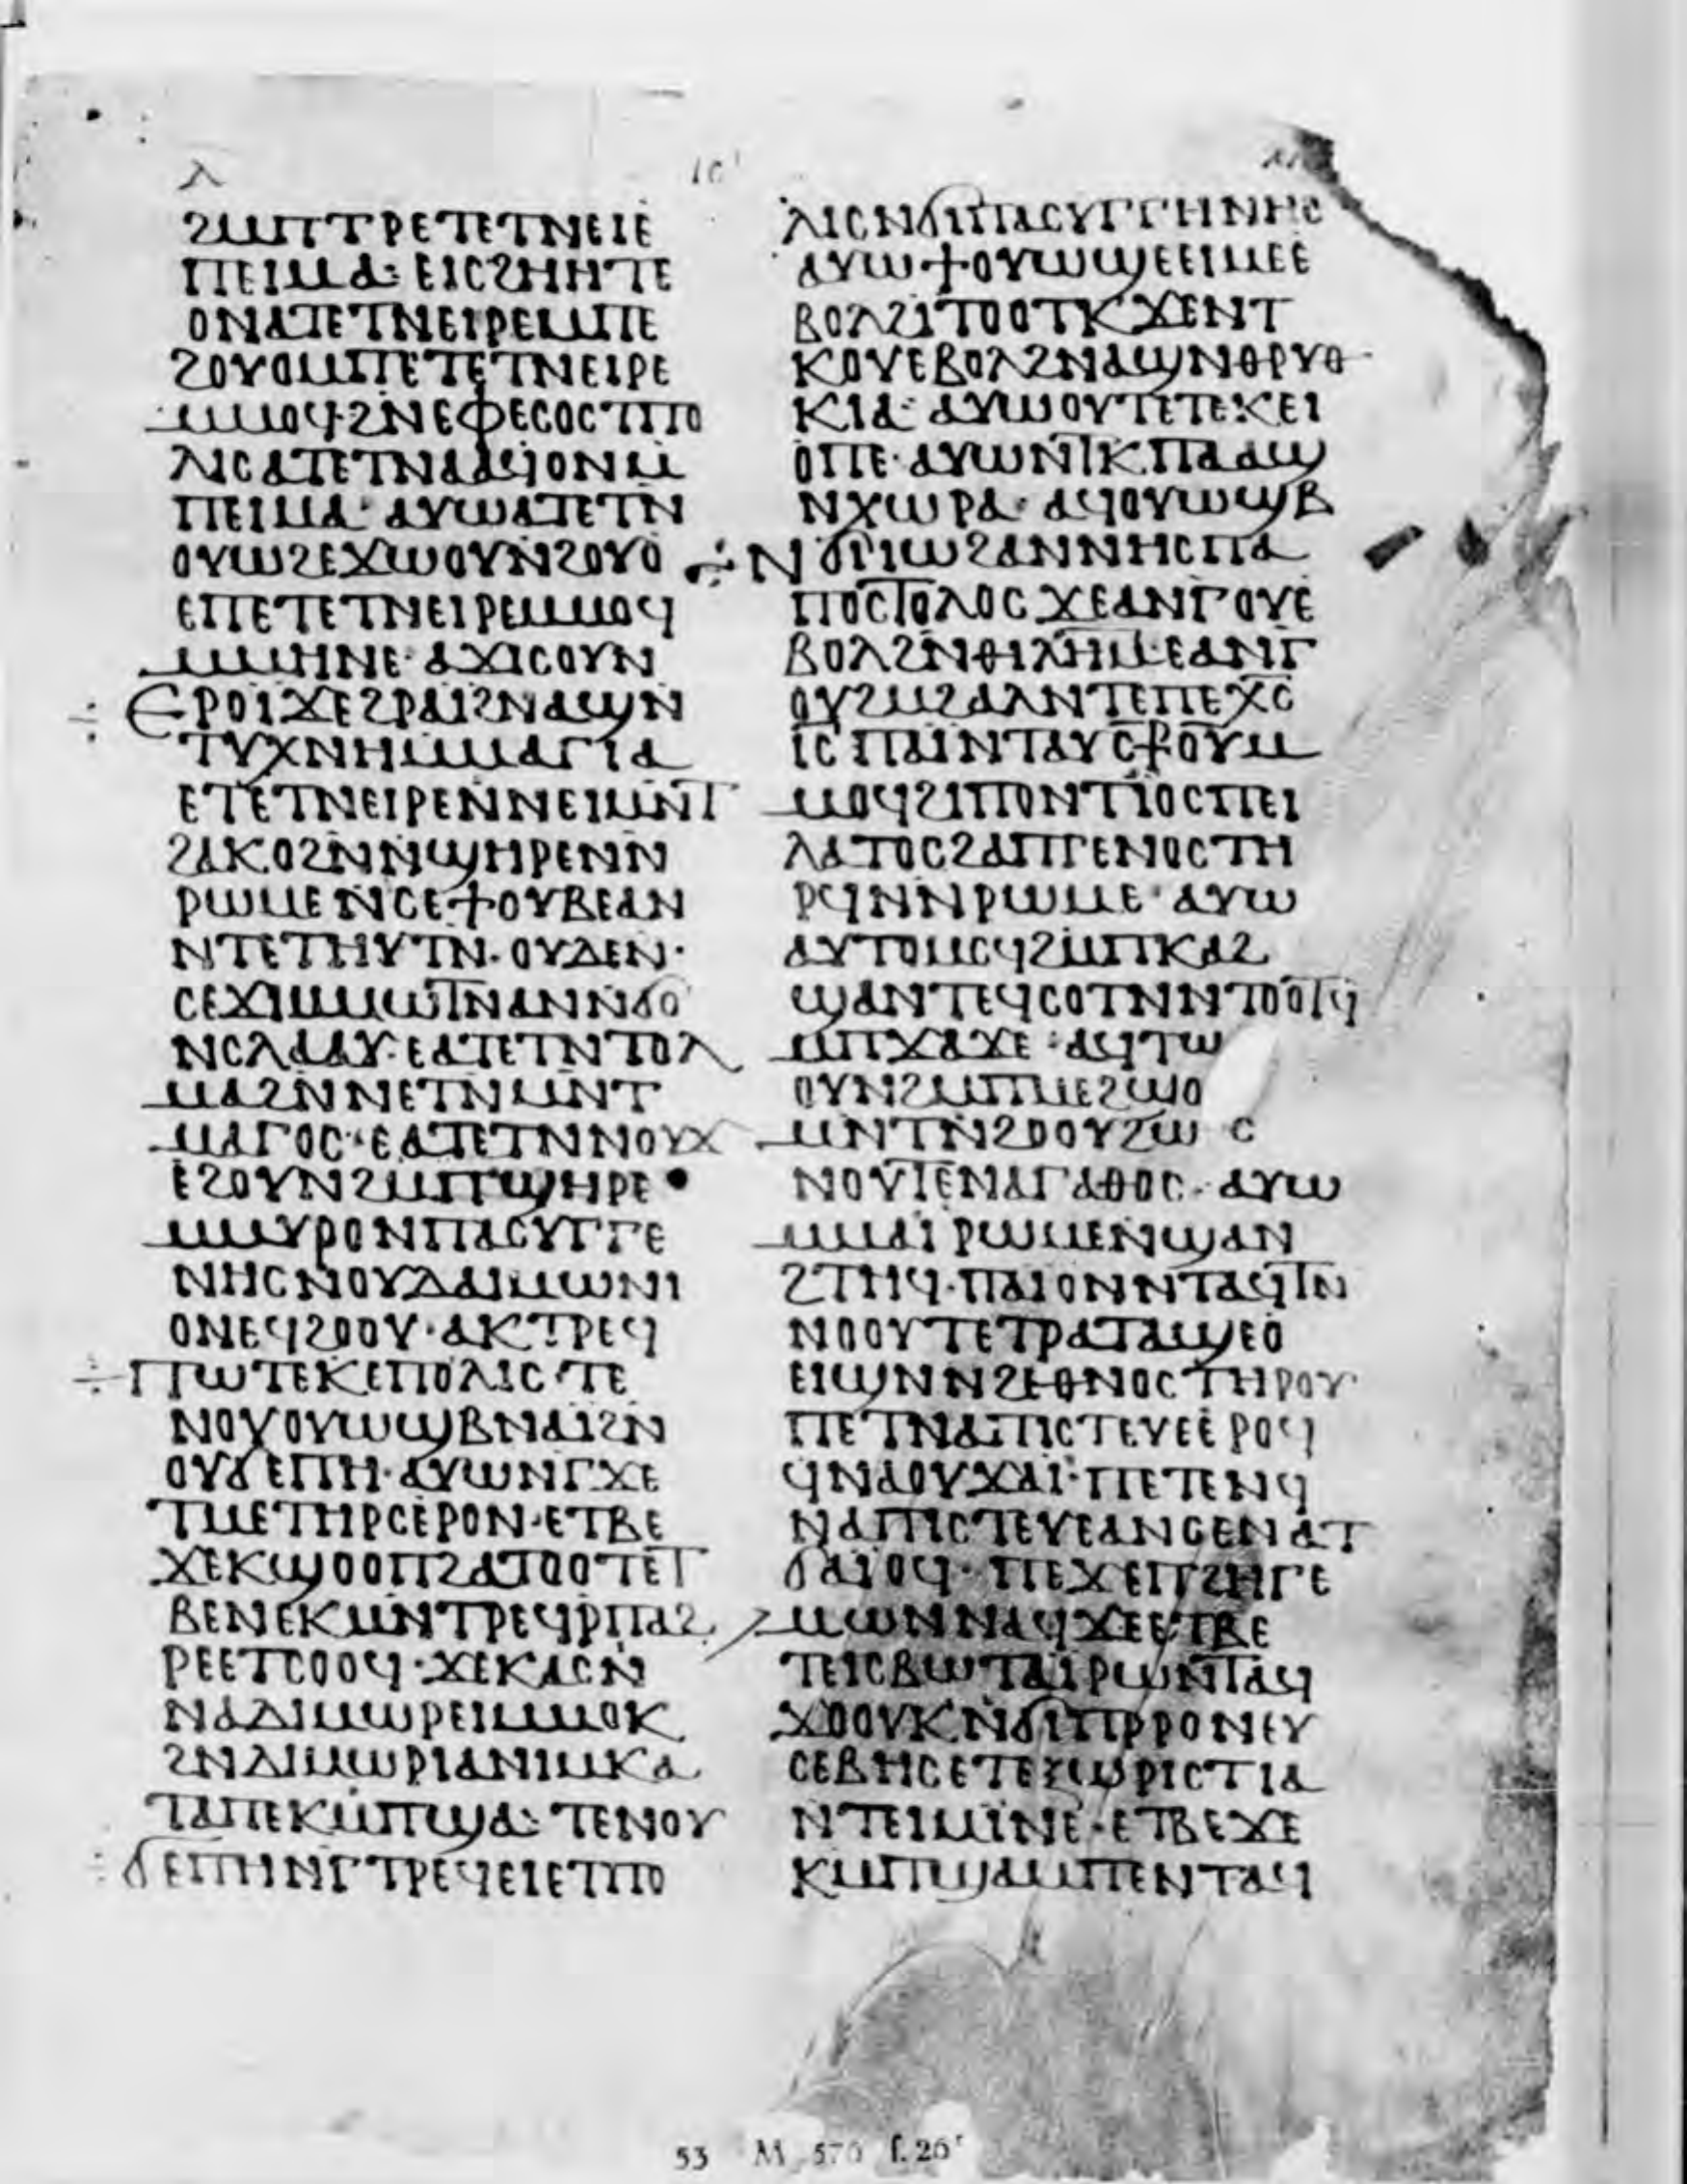 ⲗ
ϩⲙⲡⲧⲣⲉⲧⲉⲧⲛⲉⲓⲉ
ⲡⲉⲓⲙⲁ: ⲉⲓⲥϩⲏⲏⲧⲉ
ⲟⲛⲁⲧⲉⲧⲛⲉⲓⲣⲉⲙⲡⲉ
ϩⲟⲩⲟⲙⲡⲉⲧⲉⲧⲛⲉⲓⲣⲉ
ⲙⲙⲟϥϩⲛⲉⲫⲉⲥⲟⲥⲧⲡⲟ
ⲗⲓⲥⲁⲧⲉⲧⲛⲁⲁϥⲟⲛⲙ
ⲡⲉⲓⲙⲁ· ⲁⲩⲱⲁⲧⲉⲧⲛ
ⲟⲩⲱϩⲉϫⲱⲟⲩⲛϩⲟⲩⲟ
ⲉⲡⲉⲧⲉⲧⲛⲉⲓⲣⲉⲙⲙⲟϥ
ⲙⲙⲏⲛⲉ· ⲁϫⲓⲥⲟⲩⲛ
ⲉⲣⲟⲓϫⲉϩⲣⲁⲓϩⲛⲁϣⲛ
ⲧⲩⲭⲛⲏⲙⲙⲁⲅⲓⲁ
ⲉⲧⲉⲧⲛⲉⲓⲣⲉⲛⲛⲉⲓⲙⲛⲧ
ϩⲁⲕⲟϩⲛⲛϣⲏⲣⲉⲛⲛ
ⲣⲱⲙⲉⲛⲥⲉϯⲟⲩⲃⲉⲁⲛ
ⲛⲧⲉⲧⲏⲩⲧⲛ· ⲟⲩⲇⲉⲛ·
ⲥⲉϫⲓⲙⲙⲱⲧⲛⲁⲛⲛϭⲟ
ⲛⲥⲗⲁⲁⲩ· ⲉⲁⲧⲉⲧⲛⲧⲟⲗ
ⲙⲁϩⲛⲛⲉⲧⲛⲙⲛⲧ
ⲙⲁⲅⲟⲥ· ⲉⲁⲧⲉⲧⲛⲛⲟⲩϫ
ⲉϩⲟⲩⲛϩⲙⲡϣⲏⲣⲉ
ⲙⲙⲩⲣⲟⲛⲡⲁⲥⲩⲅⲅⲉ
ⲛⲏⲥⲛⲟⲩⲇⲁⲓⲙⲱⲛⲓ
ⲟⲛⲉϥϩⲟⲟⲩ· ⲁⲕⲧⲣⲉϥ
ⲡⲱⲧⲉⲕⲉⲡⲟⲗⲓⲥ· ⲧⲉ
ⲛⲟⲩⲟⲩⲱϣⲃⲛⲁⲓϩⲛ
ⲟⲩϭⲉⲡⲏ· ⲁⲩⲱⲛⲅϫⲉ
ⲧⲙⲉⲧⲏⲣⲥⲉⲣⲟⲛ· ⲉⲧⲃⲉ
ϫⲉⲕϣⲟⲟⲡϩⲁⲧⲟⲟⲧⲉⲧ
ⲃⲉⲛⲉⲕⲙⲛⲧⲣⲉϥⲣⲡⲁϩ
ⲣⲉⲉⲧⲥⲟⲟϥ· ϫⲉⲕⲁⲥⲛ
ⲛⲁⲇⲓⲙⲱⲣⲉⲓⲙⲙⲟⲕ
ϩⲛⲇⲓⲙⲱⲣⲓⲁⲛⲓⲙⲕⲁ
ⲧⲁⲡⲉⲕⲙⲡϣⲁ: ⲧⲉⲛⲟⲩ
ϭⲉⲡⲏⲛⲅⲧⲣⲉϥⲉⲓⲉⲧⲡⲟ
ⲗⲓⲥⲛϭⲓⲡⲁⲥⲩⲅⲅⲏⲛⲏⲥ
ⲁⲩⲱϯⲟⲩⲱϣⲉⲉⲓⲙⲉⲉ
ⲃⲟⲗϩⲓⲧⲟⲟⲧⲕϫⲉⲛⲧ
ⲕⲟⲩⲉⲃⲟⲗϩⲛⲁϣⲛⲑⲣⲩⲑ
ⲕⲓⲁ· ⲁⲩⲱⲟⲩⲧⲉⲧⲉⲕⲉⲓ
ⲟⲡⲉ· ⲁⲩⲱⲛⲧⲕⲡⲁⲁϣ
ⲛⲭⲱⲣⲁ· ⲁϥⲟⲩⲱϣⲃ
ⲛϭⲓⲓⲱϩⲁⲛⲛⲏⲥⲡⲁ
ⲡⲟⲥⲧⲟⲗⲟⲥϫⲉⲁⲛⲅⲟⲩⲉ
ⲃⲟⲗϩⲛⲑⲓⲗⲏⲙ· ⲉⲁⲛⲅ
ⲟⲩϩⲙϩⲁⲗⲛⲧⲉⲡⲉⲭⲥ
ⲓⲥⲡⲁⲓⲛⲧⲁⲩⲥⳁⲟⲩⲙ
ⲙⲟϥϩⲓⲡⲟⲛⲧⲓⲟⲥⲡⲉⲓ
ⲗⲁⲧⲟⲥϩⲁⲡⲅⲉⲛⲟⲥⲧⲏ
ⲣϥⲛⲛⲣⲱⲙⲉ· ⲁⲩⲱ
ⲁⲩⲧⲟⲙⲥϥϩⲙⲡⲕⲁϩ
ϣⲁⲛⲧⲉϥⲥⲟⲧⲛⲛⲧⲟⲟⲧϥ
ⲙⲡϫⲁϫⲉ· ⲁϥⲧⲱ
ⲟⲩⲛϩⲙⲡⲙⲉϩϣⲟ
ⲙⲛⲧⲛϩⲟⲟⲩϩⲱ ⲥ
ⲛⲟⲩⲧⲉⲛⲁⲅⲁⲑⲟⲥ· ⲁⲩⲱ
ⲙⲙⲁⲓⲣⲱⲙⲉⲛϣⲁⲛ
ϩⲧⲏϥ· ⲡⲁⲓⲟⲛⲛⲧⲁϥⲧⲛ
ⲛⲟⲟⲩⲧⲉⲧⲣⲁⲧⲁϣⲉⲟ
ⲉⲓϣⲛⲛϩⲉⲑⲛⲟⲥⲧⲏⲣⲟⲩ
ⲡⲉⲧⲛⲁⲡⲓⲥⲧⲉⲩⲉⲉⲣⲟϥ
ϥⲛⲁⲟⲩϫⲁⲓ· ⲡⲉⲧⲉⲛϥ
ⲛⲁⲡⲓⲥⲧⲉⲩⲉⲁⲛⲟⲉⲛⲁⲧ
ϭⲁⲓⲟϥ· ⲡⲉϫⲉⲡϩⲏⲅⲉ
ⲙⲱⲛⲛⲁϥϫⲉⲉⲧⲃⲉ
ⲧⲉⲓⲥⲃⲱⲧⲁⲓⲣⲱⲛⲧⲁϥ
ϫⲟⲟⲩⲕⲛϭⲓⲡⲣⲣⲟⲛⲉⲩ
ⲥⲉⲃⲏⲥⲉⲧⲉⲝⲱⲣⲓⲥⲧⲓⲁ
ⲛⲧⲉⲓⲙⲓⲛⲉ· ⲉⲧⲃⲉϫⲉ
ⲕⲙⲡϣⲁⲙⲡⲉⲛⲧⲁϥ
53 M 570 f.26ʳ